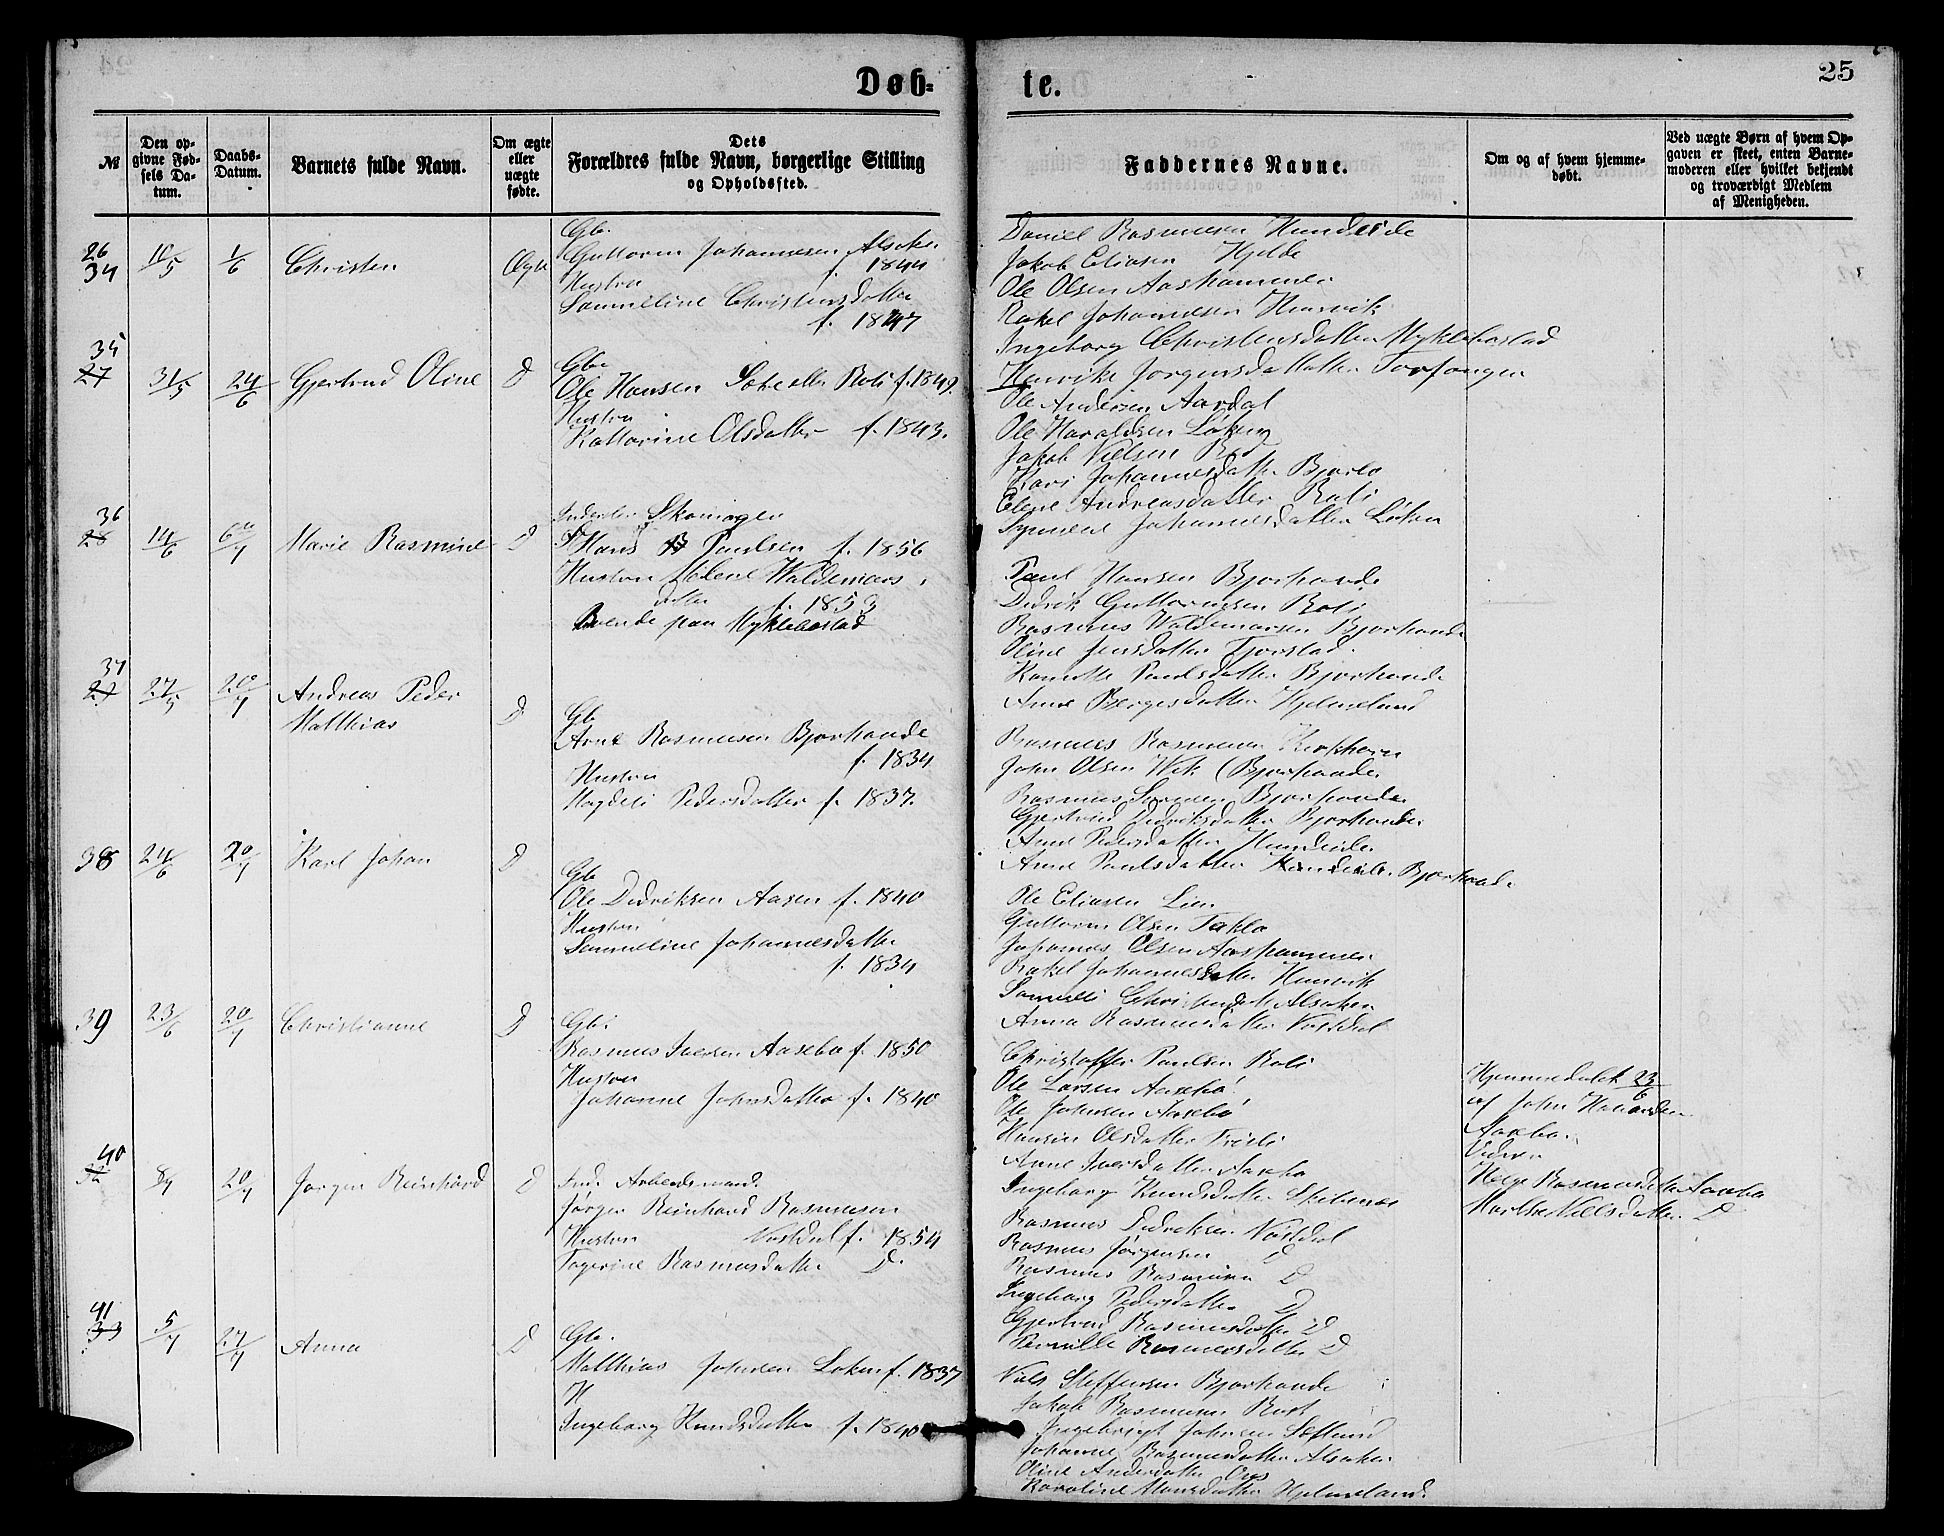 Døb-
te.
25
№
Den opgivne Fødsels Datum.
Daabs-Datum.
Barnets fulde Navn.
Om ægte eller uægte fødte.
Dets Forældres fulde Navn, borgerlige Stilling og Opholdssted.
Faddernes Navne.
Om og af hvem hjemmedøbt.
Ved uægte Børn af hvem Opgaven er skeet, enten Barnemoderen eller hvilket bekjendt og troværdigt Medlem af Menigheden.
26
34
1/6
Christen
Ægte
Gb.
Guttorm Johannesen Alsaker
f. 1844
Hustru
Samueline Christensdatter
f. 1847
Daniel Rasmusen Hundeide
Jakob Eliasen Hjelde
Ole Olsen Aashammer
Rakel Johannesen Hennvik
Ingeborg Christensdatter Myklebostad
35
27
31/5
24/6
Gjertrud Oline
D
Gbr
Ole Hansen Roti f. 1849.
Hustru
Kattarine Olsdatter f. 1843.
Henrike Jørgensdatter Torfanger
Ole Andersen Aardal
Ole Haraldsen Løken
Jakob Nielsen
Kari Johannesdatter Bjørlo
Elene Andreasdatter Roti
Synneve Johannesdatter Løken
36
28
14/6
6/7
Marie Rasmine
D
Inderste Skomager
Hans Paulsen f. 1856
Hustru Helene Waldemars
datter f. 1853
Boende paa Myklebostad
Paul Hansen Bjørhovde
Didrik Guttormsen Roti
Rasmus Waldemarsen Bjørhovde
Oline Jensdatter
Paulsdatter Bjørhovde
Anne Børgesdatter Hjelmeland
37
29
27/5
20/7
Andreas Peder
Matthias
D
Gb
Arne Rasmusen Bjørhovde
f. 1834
Hustru
Magdeli Pedersdatter f. 1837.
Rasmus Rasmusen
John Olsen Wik (Bjørhovde
Rasmus Bjørhovde
Gjertrud Didriksdatter Bjørhovde
Anne Pedersdatter Hundeide
Anne Paulsdatter Hundeide Bjørhovde
38
24/6
20/7
Karl Johan
D
Gb
Ole Didriksen Aasen f. 1840
Hustru
Samueline Johannesdatter
f. 1834
Ole Eliasen Lien
Guttorm Olsen Taklo
Johannes Olsen Aashammer
Rakel Johannesdatter Hennvik
Alsaker
Anna Rasmusdatter Nordal
39
23/6
20/7
Christianne
D
Gb.
Rasmus Iversen Aasebø f. 1850
Hustru
Johanne Johnsdatter f. 1840
Christoffer Paulsen Roti
Ole Larsen Aasebø
Ole Johnsen Aasebø
Olsdatter
Anne Iversdatter Aasebø
Ingeborg Knudsdatter
Hjemmedøbt 23/6
af John
Aasebø.
Vidner
Rasmusdatter Aasebø
Marthe Nielsdatter D
40
32
8/7
20/7
Jørgen Reinhard
D
Ind. Arbeidsmand.
Jørgen Reinhard Rasmusen
Hustru Nordal f. 1854
Rasmusdatter D.
Rasmus Didriksen Nordal
Rasmus Jørgensen D
Rasmus Rasmusen D
Ingeborg Pedersdatter D
Gjertrud Rasmusdatter D
Pernille Rasmusdatter D
41
33
5/7
27/7
Anna
D
Gb.
Matthias Johnsen Løken f. 1837
H
Ingeborg Knudsdatter f. 1840
Niels Steffensen Bjørhovde
Jakob Rasmusen
Ingebrigt Johnsen
Johanne Rasmusdatter Alsaker
Oline Andersdatter
Karoline Monsdatter Hjelmeland.